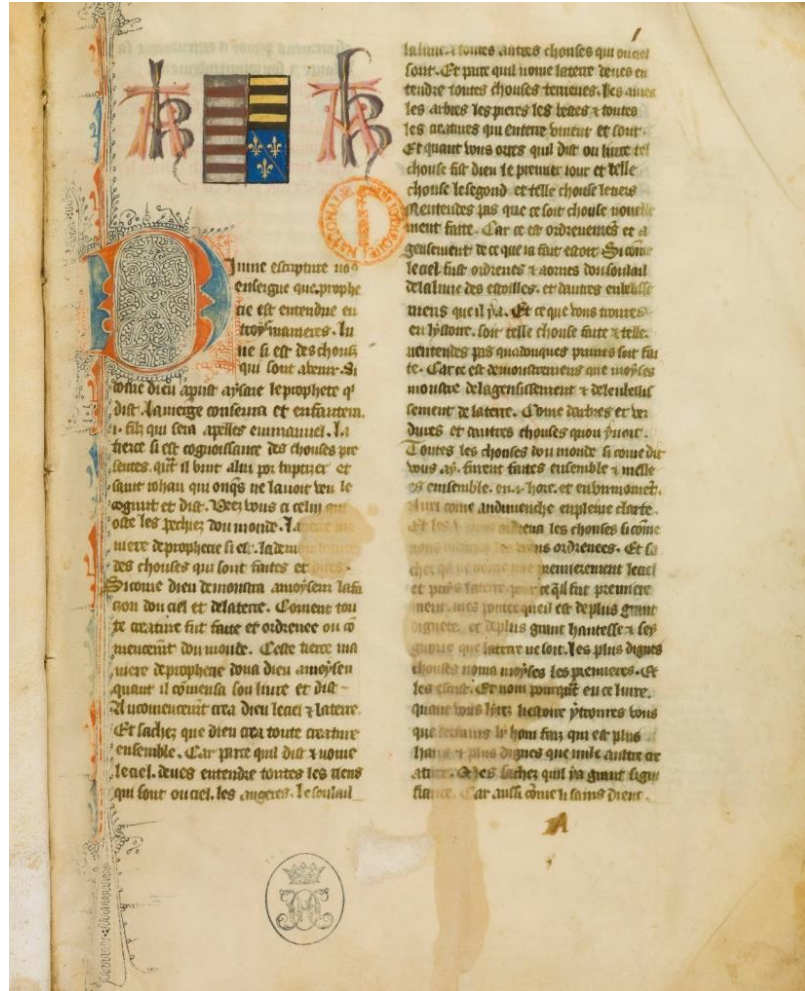 1
Divine escripture no9
enseigne que prophe
cie est entendue en
troys manieres. Lu
ne si est des chous
qui sont avenir. Si
come dieu aprist aysaie le prophete q'
dist. La vierge concevra et enfantera
.i. filz qui sera apelles emmanuel. La
tierce si est cognoissance des chouses pre
sentes. quāt il vint a lui por baptizer et
saint iohan qui onq̄s ne lavoit veu le
cognut et dist. Veez vous ci celui qui
oste les pechiez dou monde. La tierce ma
niere de prophecie si est. la
des chouses qui sont faites et
Sicome dieu demonstra a moysen la fa
zon dou ciel et de la terre. Coment tou
te creature fut faite et ordrenee ou cō
mencemt dou monde. Ceste tierce ma
niere de prophecie dona dieu a moysen
quant il comensa son livre et dist
Au comencemt crea dieu le ciel ⁊ la terre.
Et sachez que dieu crea toute creature
ensemble. Car parce quil dist ⁊ nome
le ciel. deves entendre toutes les riens
qui sont ou ciel. les angeres. le soulail
la lune. ⁊ toutes autres chouses qui ou ciel
sont. Et parce quil nome la terre deves en
tendre toutes chouses terrienes. Les aives
les arbres les pieres les bestes ⁊ toutes
les creatures qui en terre vivent et sont.
Et quant vous orres quil dist ou livre tel
chouse fist dieu le premier iour et telle
chouse le segond et telle chouse le tiers
Nentendes pas que ce soit chouse novele
ment faite. Car ce est ordrenemēs et a
gensement de ce que ia fait estoit. Si com̄e
le ciel fust ordrenes ⁊ aornes dou soulail
de la lune des estoilles. et dautres enbelisse
mens que il ya. Et ce que vous trouves
en lystoire. soit telle chouse faite ⁊ telle.
nentendes pas quadonques primes soit fai
te. Car ce est demonstremens que moyses
monstre de lagensissement ⁊ de lenbellis
sement de la terre. Come darbres et ver
dures et dautres chouses quon y voit.
Toutes les chouses dou monde si come dit
vous ay. furent faites ensemble ⁊ melle
es ensemble. en .i. hore. et en un momēt.
come au dimenche en pleine clarte.
Et les ordena les chouses si cōme
ordrenees. Et sa
premierement le ciel
et puys la terre ce q̄l fut premiere
ment. mes porce queil est de plus grant
dignete. et de plus grant hautesse ⁊ sey
gnorie que la terre ne soit. Les plus dignes
chouses noma moyses les premieres. Et
les Et nom porquāt en ce livre.
quant vous lyrez histoire y trouves vous
que li hom faiz qui est plus
haus ⁊ plus dignes que nule autre cre
ature. Mes sachez quil ya grant signi
fiance. Car aussi cōme li sains dient
A